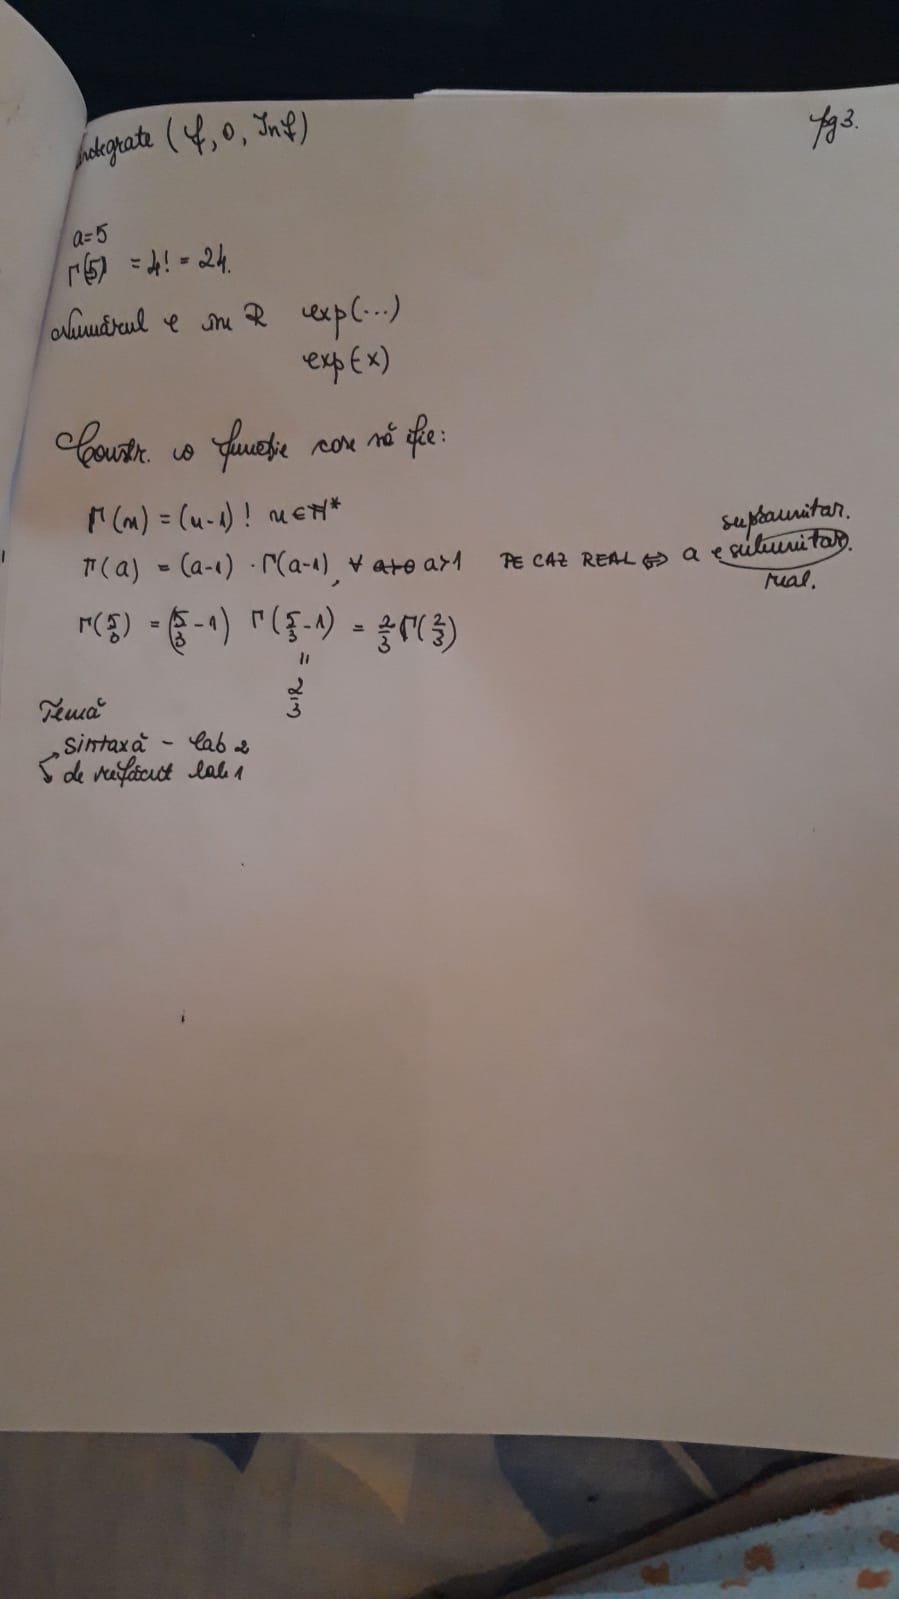 integrate (f, 0, Inf)
pg 3.
a=5
Γ(5) = 4! = 24.
Numărul e în R exp(...)
exp(-x)
Constr. o funcție care să fie:
Γ(n) = (n-1)! n∈ℕ*
Γ(a) = (a-1) · Γ(a-1), ∀ a>1 PE CAZ REAL ⇔ a e subunitar.
supraunitar.
real.
Γ(5/3) = (5/3 - 1) Γ(5/3 - 1) = 2/3 Γ(2/3)
=
2/3
Temă
sintaxă - lab 2
de refăcut lab 1